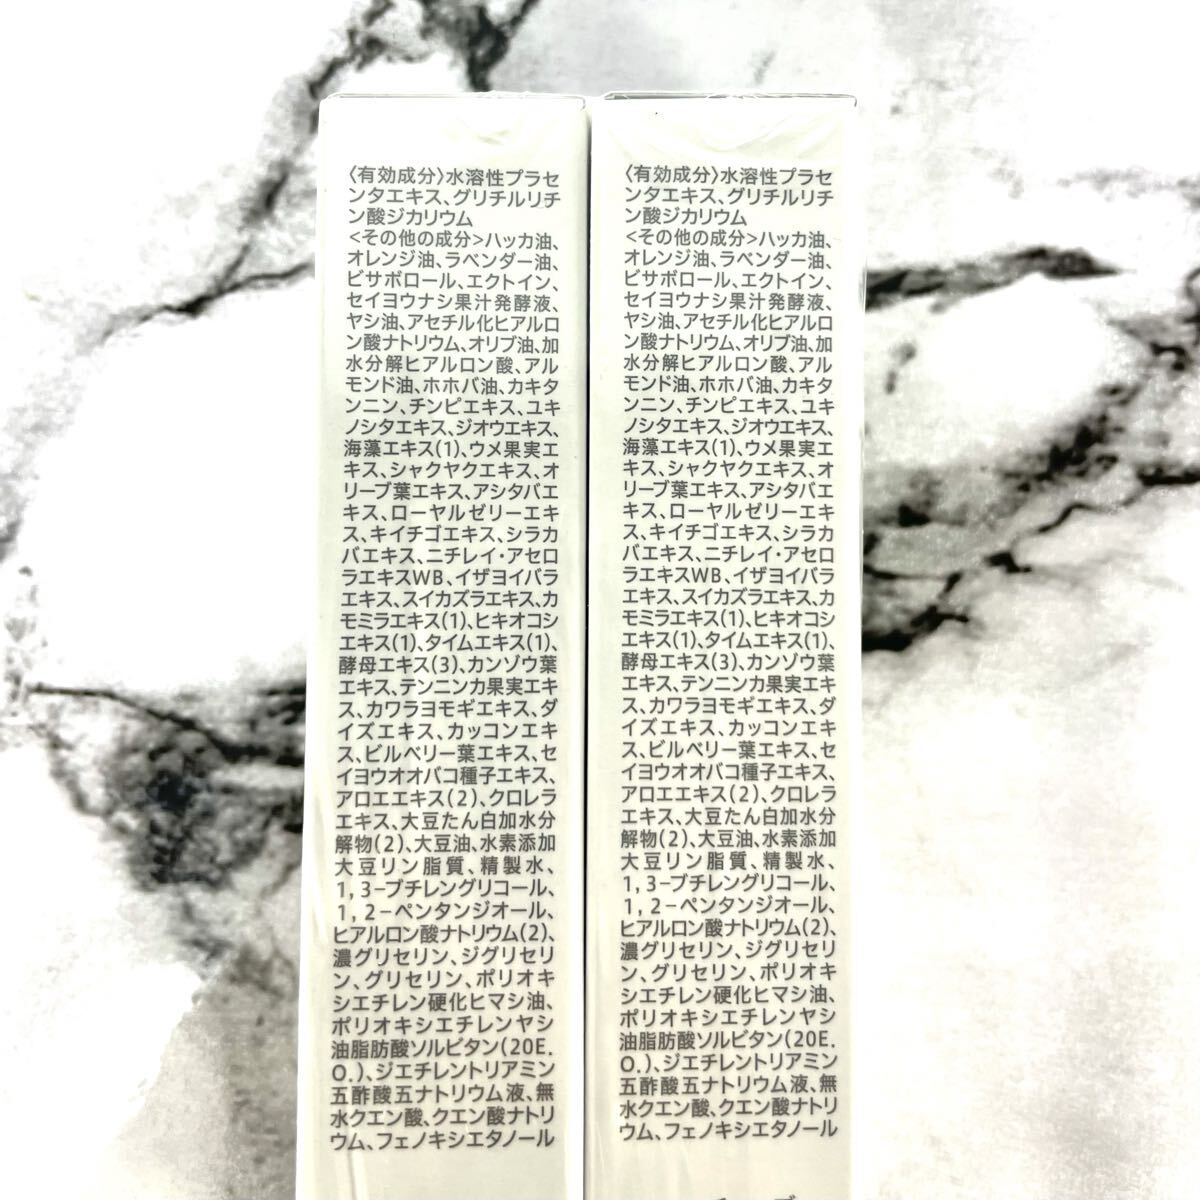 〈有効成分〉水溶性プラセ
ンタエキス、グリチルリチ
ン酸ジカリウム
<その他の成分>ハッカ油、
オレンジ油、ラベンダー油、
ビサボロール、エクトイン、
セイヨウナシ果汁発酵液、
ヤシ油、アセチル化ヒアルロ
ン酸ナトリウム、オリブ油、加
水分解ヒアルロン酸、アル
モンド油、ホホバ油、カキタ
ンニン、チンピエキス、ユキ
ノシタエキス、ジオウエキス、
海藻エキス(1)、ウメ果実エ
キス、シャクヤクエキス、オ
リーブ葉エキス、アシタバエ
キス、ローヤルゼリーエキ
ス、キイチゴエキス、シラカ
バエキス、ニチレイ・アセロ
ラエキスWB、イザヨイバラ
エキス、スイカズラエキス、カ
モミラエキス(1)、ヒキオコシ
エキス(1)、タイムエキス(1)、
酵母エキス(3)、カンゾウ葉
エキス、テンニンカ果実エキ
ス、カワラヨモギエキス、ダ
イズエキス、カッコンエキ
ス、ビルベリー葉エキス、セ
イヨウオオバコ種子エキス、
アロエエキス(2)、クロレラ
エキス、大豆たん白加水分
解物(2)、大豆油、水素添加
大豆リン脂質、精製水、
1,3-ブチレングリコール、
1,2-ペンタンジオール、
ヒアルロン酸ナトリウム(2)、
濃グリセリン、ジグリセリ
ン、グリセリン、ポリオキ
シエチレン硬化ヒマシ油、
ポリオキシエチレンヤシ
油脂肪酸ソルビタン(20E.
O.)、ジエチレントリアミン
五酢酸五ナトリウム液、無
水クエン酸、クエン酸ナトリ
ウム、フェノキシエタノール
〈有効成分〉水溶性プラセ
ンタエキス、グリチルリチ
ン酸ジカリウム
<その他の成分>ハッカ油、
オレンジ油、ラベンダー油、
ビサボロール、エクトイン、
セイヨウナシ果汁発酵液、
ヤシ油、アセチル化ヒアルロ
ン酸ナトリウム、オリブ油、加
水分解ヒアルロン酸、アル
モンド油、ホホバ油、カキタ
ンニン、チンピエキス、ユキ
ノシタエキス、ジオウエキス、
海藻エキス(1)、ウメ果実エ
キス、シャクヤクエキス、オ
リーブ葉エキス、アシタバエ
キス、ローヤルゼリーエキ
ス、キイチゴエキス、シラカ
バエキス、ニチレイ・アセロ
ラエキスWB、イザヨイバラ
エキス、スイカズラエキス、カ
モミラエキス(1)、ヒキオコシ
エキス(1)、タイムエキス(1)、
酵母エキス(3)、カンゾウ葉
エキス、テンニンカ果実エキ
ス、カワラヨモギエキス、ダ
イズエキス、カッコンエキ
ス、ビルベリー葉エキス、セ
イヨウオオバコ種子エキス、
アロエエキス(2)、クロレラ
エキス、大豆たん白加水分
解物(2)、大豆油、水素添加
大豆リン脂質、精製水、
1,3-ブチレングリコール、
1,2-ペンタンジオール、
ヒアルロン酸ナトリウム(2)、
濃グリセリン、ジグリセリ
ン、グリセリン、ポリオキ
シエチレン硬化ヒマシ油、
ポリオキシエチレンヤシ
油脂肪酸ソルビタン(20E.
O.)、ジエチレントリアミン
五酢酸五ナトリウム液、無
水クエン酸、クエン酸ナトリ
ウム、フェノキシエタノール